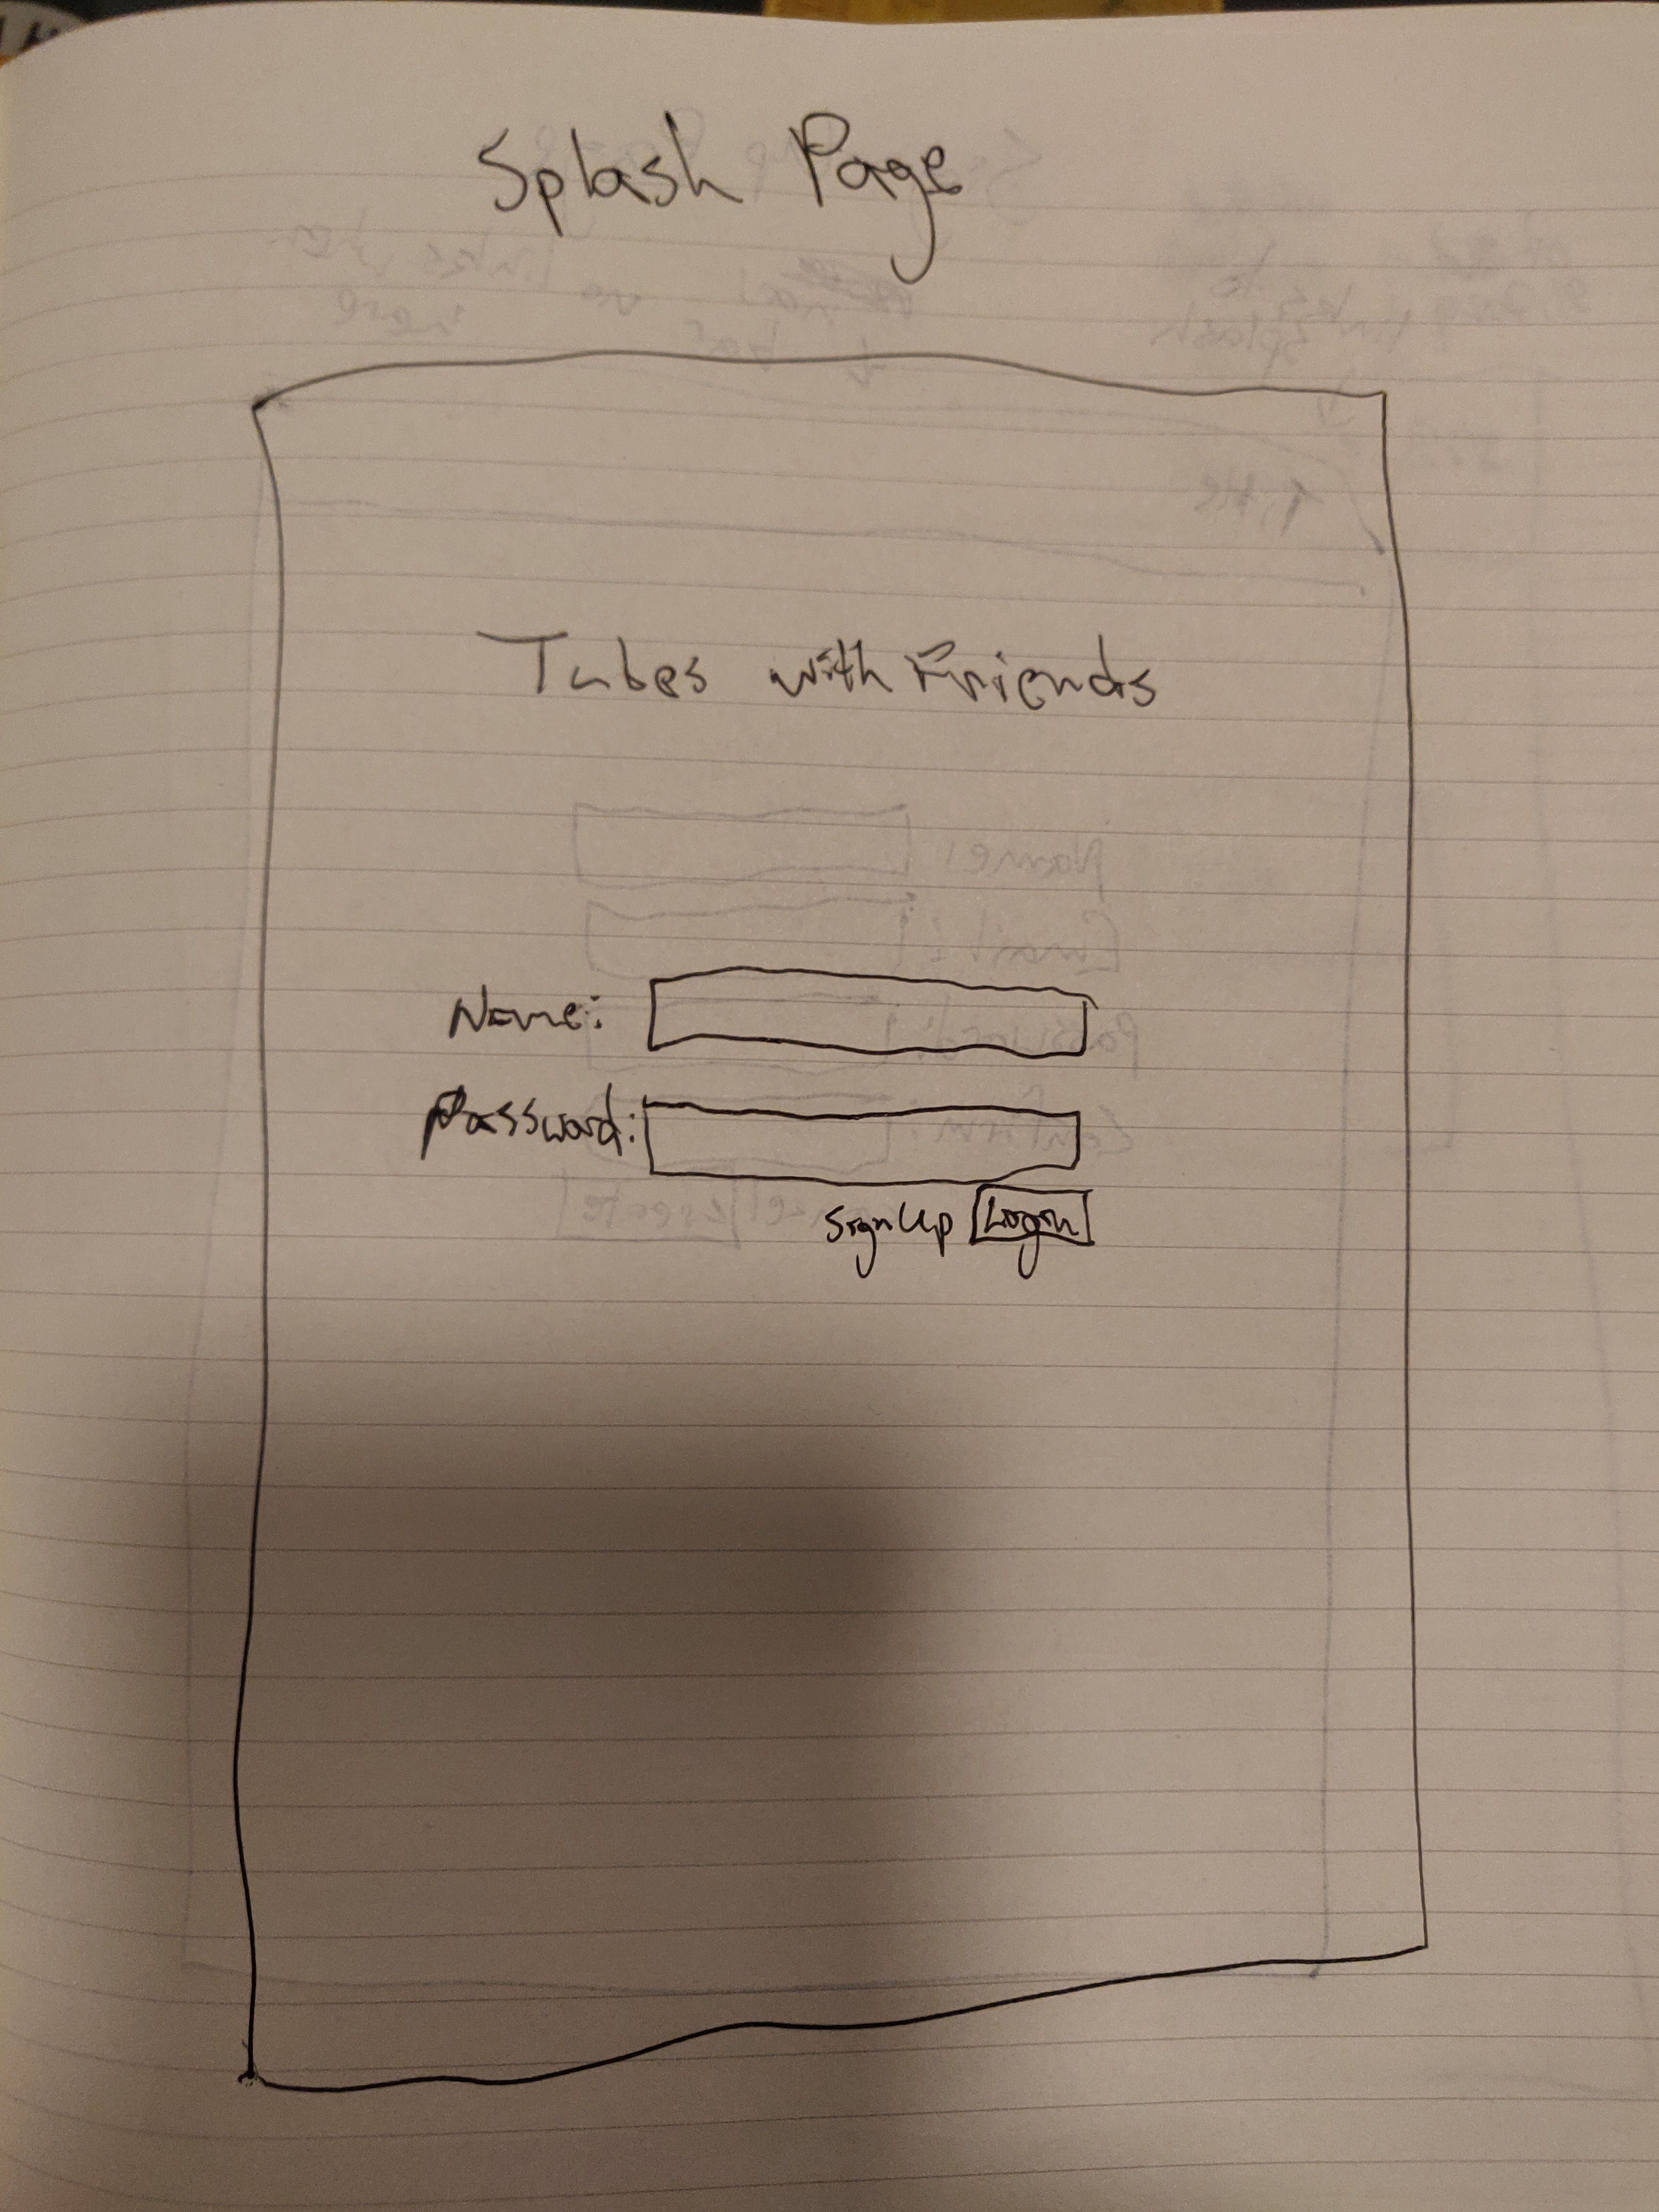 Splash Page
Tubes with Friends
Name:
Password:
SignUp Login